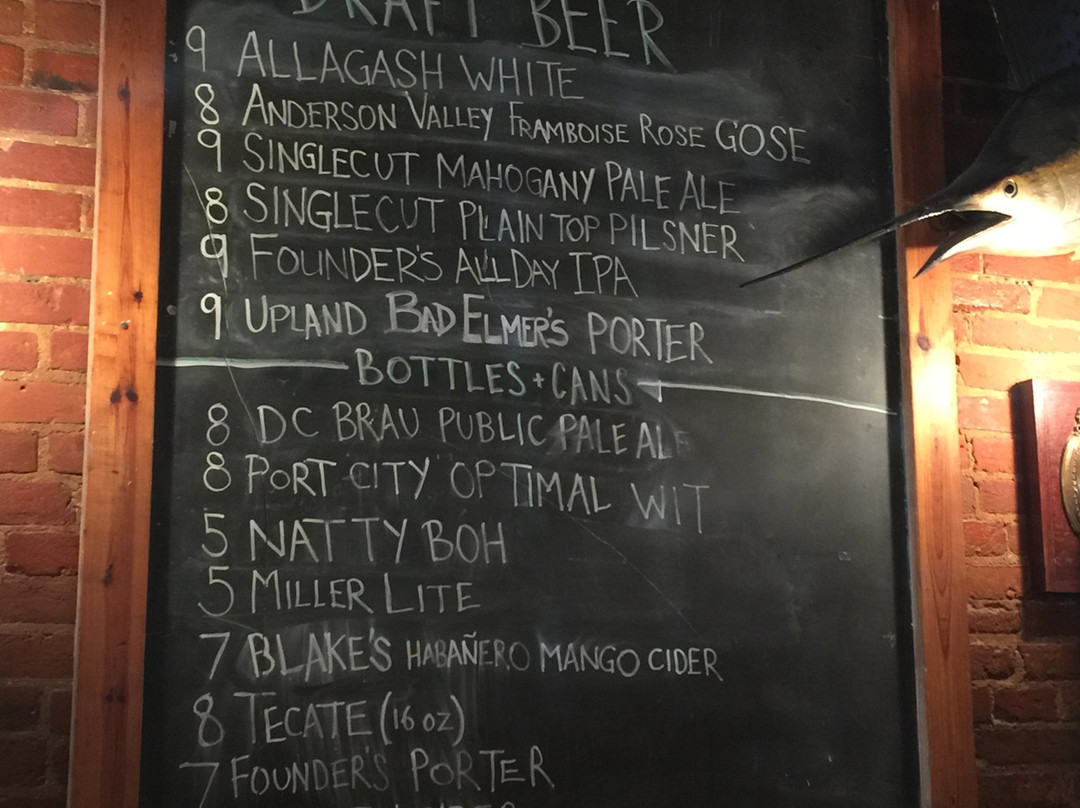 DRAFT BEER
9 ALLAGASH WHITE
8 ANDERSON VALLEY FRAMBOISE ROSE GOSE
9 SINGLECUT MAHOGANY PALE ALE
8 SINGLECUT PLAIN TOP PILSNER
9 FOUNDER'S ALL DAY IPA
9 UPLAND BAD ELMER'S PORTER
BOTTLES + CANS
8 DC BRAU PUBLIC PALE ALE
8 PORT CITY OPTIMAL WIT
5 NATTY BOH
5 MILLER LITE
7 BLAKE'S HABAÑERO MANGO CIDER
8 TECATE (16 OZ)
7 FOUNDER'S PORTER